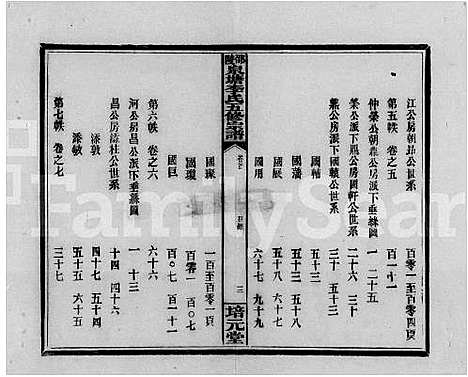 江公房朝祜公世系 百零一至百零四頁
第五帙 卷之五 百一十一
仲榮公朝鼎公房派下垂絲圖 一 二十五
鼎公派下鳳公房國軒公世系 二十六 三十
鼎公房派下國驥公世系 三十一 五十二
國輔 五十三
國藩 五十三 五十八
國展 五十八 六十七
國用 六十七 九十九
邵陵泉塘李氏五修宗譜
卷首
目錄
三
培元堂
國璨 一百至百零一頁
國瓊 百零一 百〇七
國巨 百〇七 百一十一
第六帙 卷之六 六十六
河公房昌公派下垂絲圖 一 十三
昌公房添社公世系 十四 四十六
添敦 四十七 五十四
添敏 五十五 六十五
第七帙 卷之七 三十七
FamilySearch